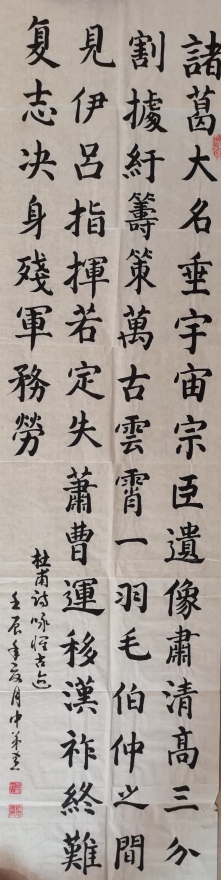 諸葛大名垂宇宙宗臣遺像肅清高三分
割據紆籌策萬古雲霄一羽毛伯仲之間
見伊呂指揮若定失蕭曹運移漢祚終難
复志決身殲軍務勞
杜甫诗咏怀古迹
壬辰年夏月中